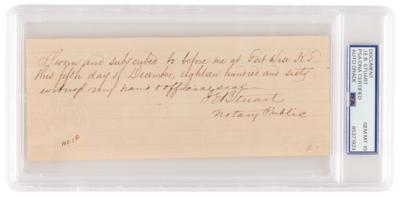 Sworn and subscribed to before me at Fort Wise K.T.
this fifth day of December, eighteen hundred and sixty
witness my hand & official seal
J E B Stuart
Notary Public
DOCUMENT
J.E.B. STUART
PSA/DNA CERTIFIED
AUTO GRADE
GEM MT 10